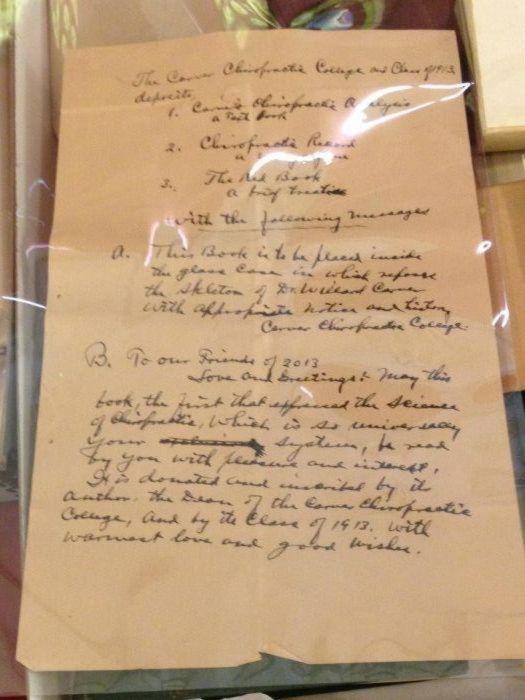 The Carver Chiropractic College and Class of 1913.
deposits
1. Carver's Chiropractic Analysis
a Text Book
2. Chiropractic Record
a
3. The Red Book
a brief treatise
With the following messages
A. This Book is to be placed inside
the glass Case in which reposes
the skeleton of Dr. Willard Carver
with appropriate notice and history
Carver Chiropractic College.
B. To our Friends of 2013
Love and Greetings: May this
book, the first that expressed the science
of Chiropractic, which is so universally
your system, be read
by you with pleasure and interest.
It is donated and inscribed by its
author, the Dean of the Carver Chiropractic
College, and by its Class of 1913. With
warmest love and good wishes.